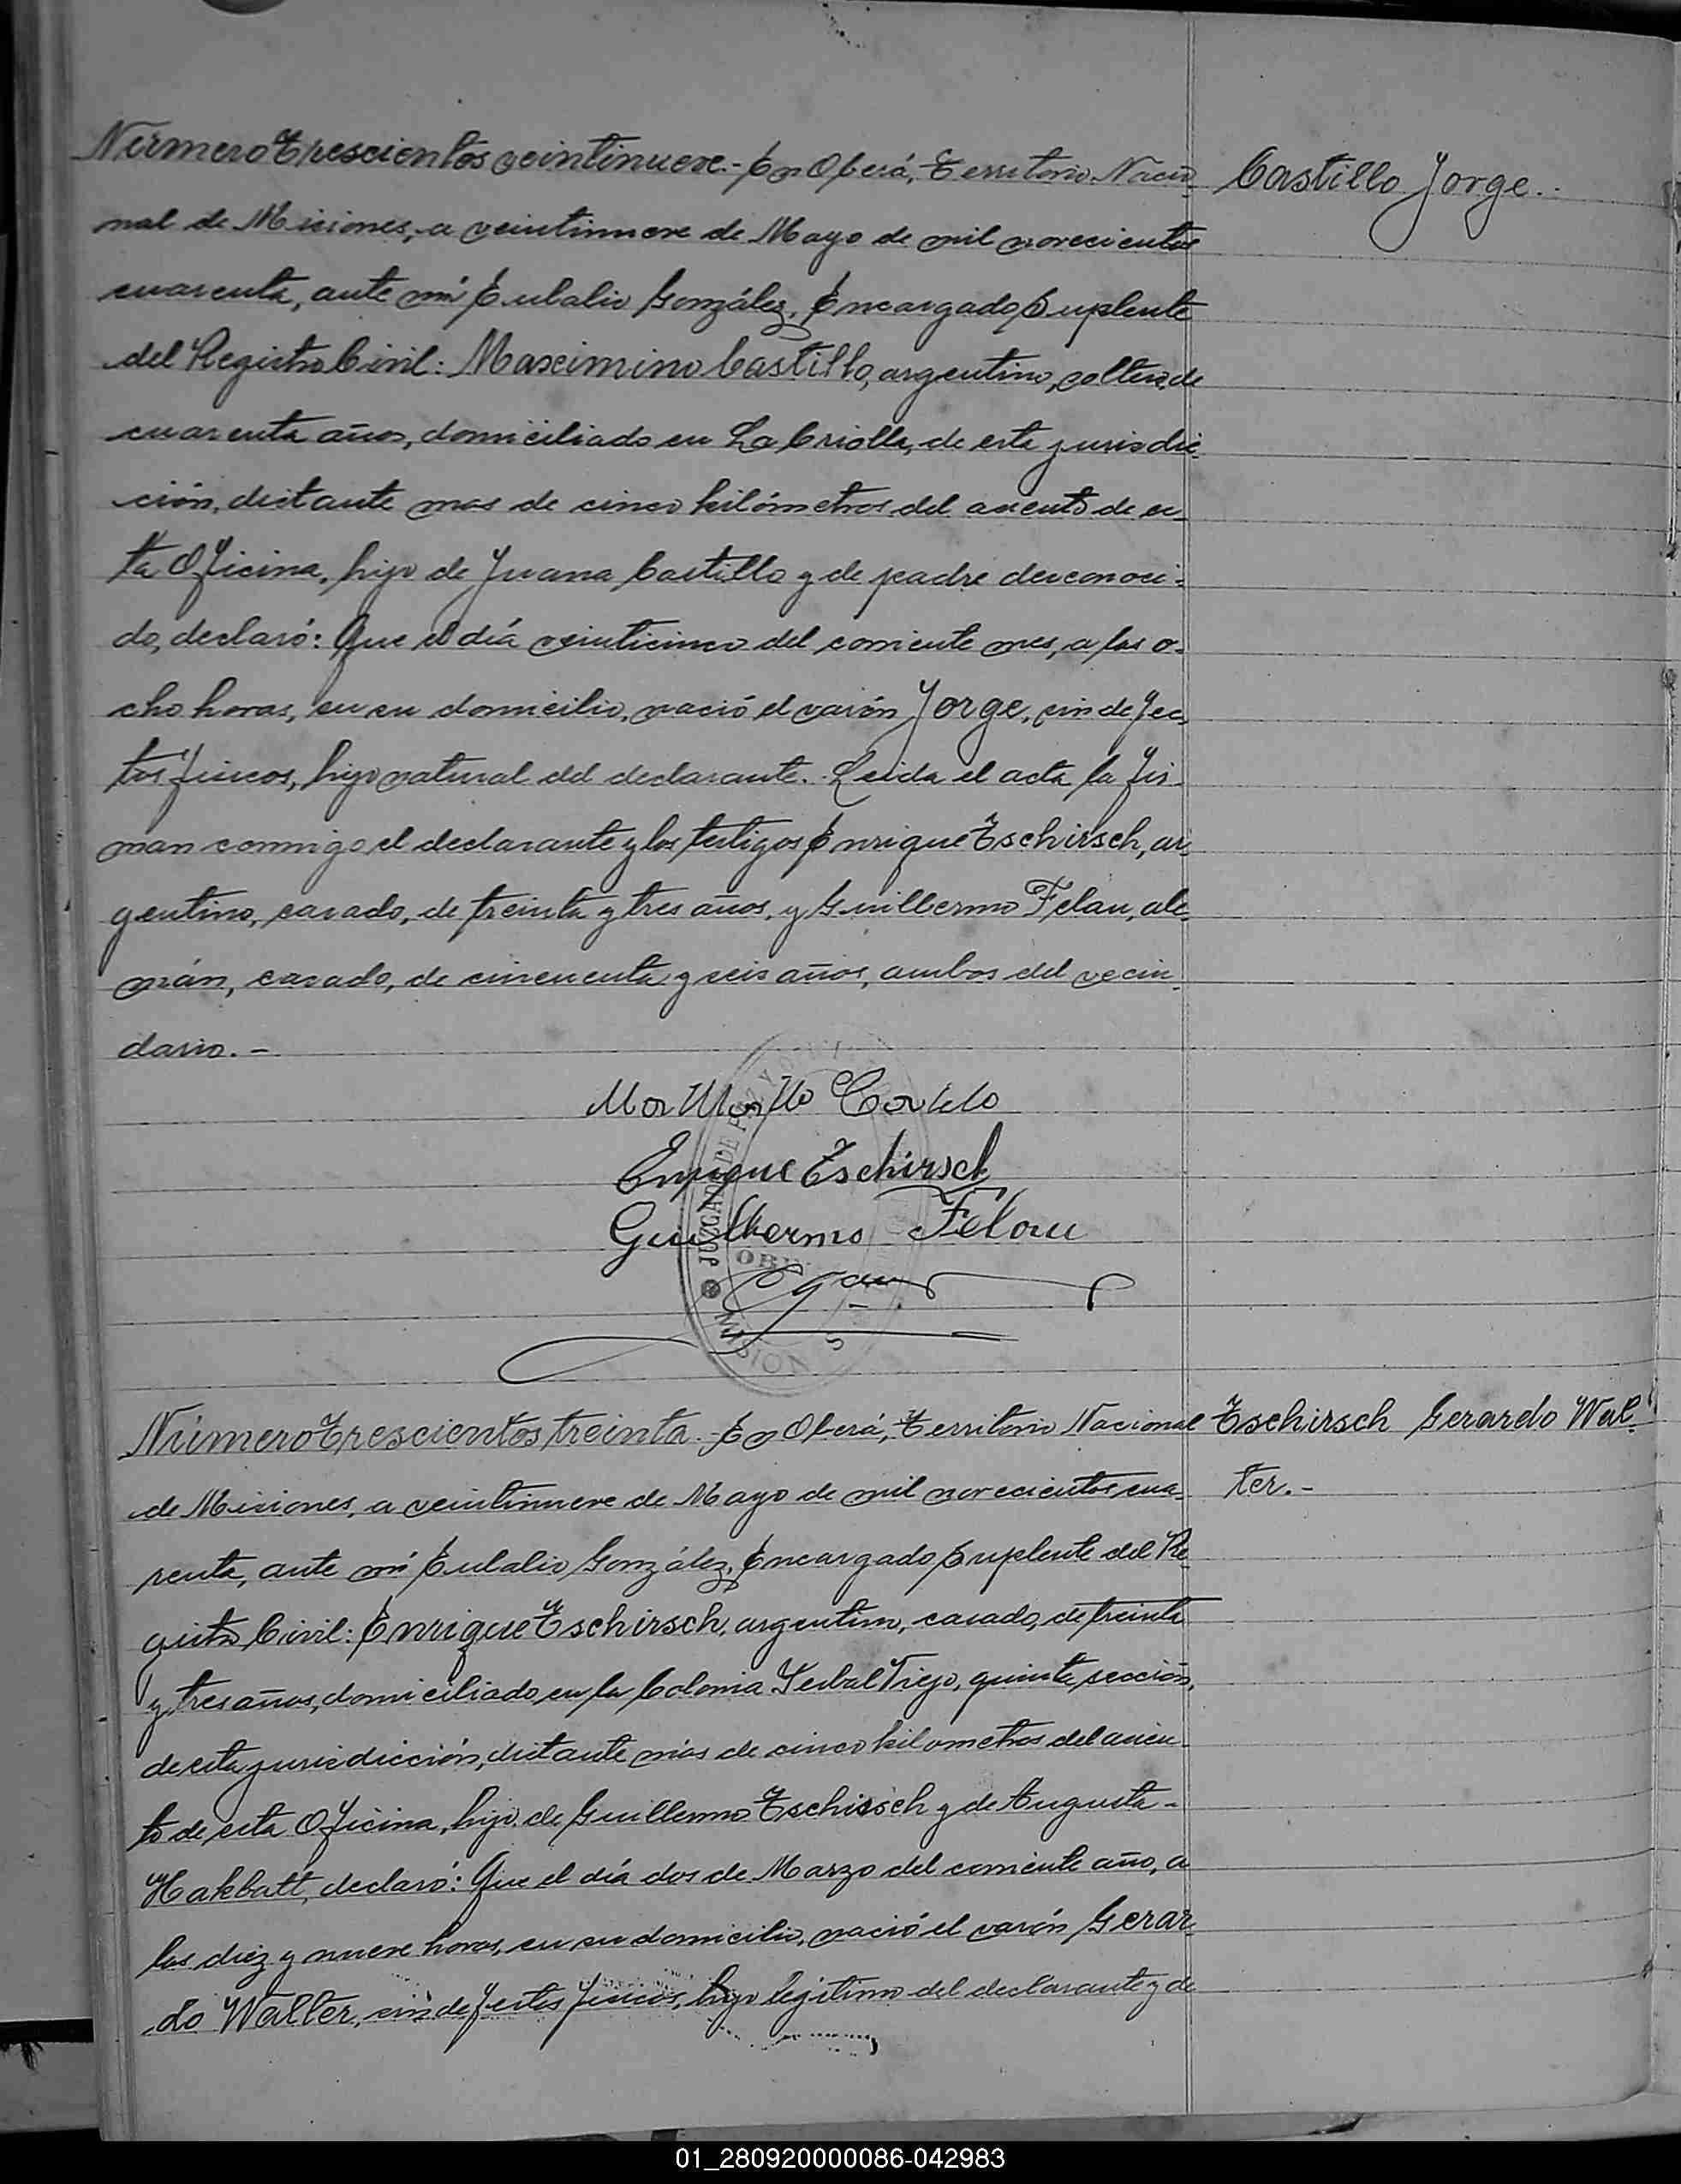 Número Trescientos veintinueve.- En Oberá, Territorio Nacio-
nal de Misiones, a veintinueve de Mayo de mil novecientos
cuarenta, ante mí Eulalio González, Encargado Suplente
del Registro Civil: Maximino Castillo, argentino, soltero, de
cuarenta años, domiciliado en La Criolla, de esta jurisdic-
ción, distante mas de cinco kilómetros del asiento de es-
ta Oficina, hijo de Juana Castillo y de padre desconoci-
do, declaró: Que el día veinticinco del corriente mes, a las o-
cho horas, en su domicilio, nació el varón Jorge, sin defec-
tos físicos, hijo natural del declarante. Leida el acta la fir-
man conmigo el declarante y los testigos Enrique Tschirsch, ar-
gentino, casado, de treinta y tres años, y Guillermo Felau, ale-
mán, casado, de cincuenta y seis años, ambos del vecin-
dario.-
Enrique Tschirsch
Guillermo Felau
JUZGADO DE PAZ
MISIONES
Castillo Jorge.
Número Trescientos treinta.- En Oberá, Territorio Nacional
de Misiones, a veintinueve de Mayo de mil novecientos cua-
renta, ante mí Eulalio González, Encargado Suplente del Re-
gistro Civil: Enrique Tschirsch, argentino, casado, de treinta
y tres años, domiciliado en la Colonia Yerbal Viejo, quinta sección,
de esta jurisdicción, distante más de cinco kilometros del asien-
to de esta Oficina, hijo de Guillermo Tschirsch y de Augusta-
Hakbatt, declaró: Que el día dos de Marzo del corriente año, a
las diez y nueve horas, en su domicilio, nació el varón Gerar-
do Walter, sin defectos físicos, hijo legítimo del declarante y de
Tschirsch Gerardo Wal-
ter.-
01_280920000086-042983